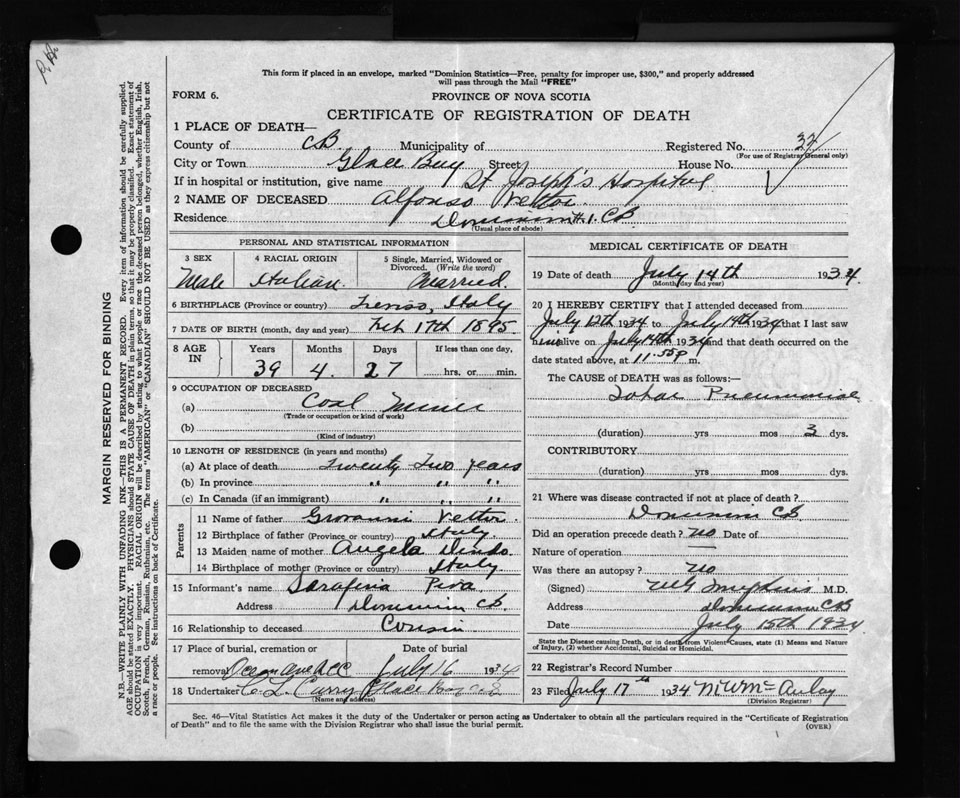 This form if placed in an envelope, marked "Dominion Statistics—Free, penalty for improper use, $300," and properly addressed
will pass through the Mail "FREE"
FORM 6.
PROVINCE OF NOVA SCOTIA
CERTIFICATE OF REGISTRATION OF DEATH
1 PLACE OF DEATH—
County of CB Municipality of Registered No. 32
(For use of Registrar General only)
City or Town Glace Bay Street House No.
If in hospital or institution, give name St Joseph's Hospital
2 NAME OF DECEASED Alfonso Vettor
Residence Dominion #1. CB
(Usual place of abode)
PERSONAL AND STATISTICAL INFORMATION
3 SEX 4 RACIAL ORIGIN 5 Single, Married, Widowed or
Divorced. (Write the word)
Male Italian Married.
6 BIRTHPLACE (Province or country) Italy
7 DATE OF BIRTH (month, day and year) Feb 17th 1895
8 AGE IN Years Months Days If less than one day,
39 4. 27 hrs. or min.
9 OCCUPATION OF DECEASED
(a) Coal Miner
(Trade or occupation or kind of work)
(b)
(Kind of industry)
10 LENGTH OF RESIDENCE (in years and months)
(a) At place of death Twenty Two years
(b) In province " " "
(c) In Canada (if an immigrant) " " "
Parents
11 Name of father Giovanni Vettor.
12 Birthplace of father (Province or country) Italy.
13 Maiden name of mother Angela
14 Birthplace of mother (Province or country) Italy
15 Informant's name Serafina Piva
Address Dominion CB.
16 Relationship to deceased Cousin
17 Place of burial, cremation or Date of burial
removal July 16 1934
18 Undertaker C. L. Curry Glace Bay CB
(Name and address)
MEDICAL CERTIFICATE OF DEATH
19 Date of death July 14th 1934
(Month, day and year)
20 I HEREBY CERTIFY that I attended deceased from
July 12th 1934 to July 14th 1934 that I last saw
him alive on July 14th 1934 and that death occurred on the
date stated above, at 11.55P m.
The CAUSE of DEATH was as follows:—
Lobar Pneumonia
(duration) yrs mos 3 dys.
CONTRIBUTORY
(duration) yrs mos dys.
21 Where was disease contracted if not at place of death?
Dominion CB.
Did an operation precede death? no Date of
Nature of operation —
Was there an autopsy? no
(Signed) M.D.
Address Dominion CB
Date July 15th 1934
State the Disease causing Death, or in death from Violent Causes, state (1) Means and Nature
of Injury, (2) whether Accidental, Suicidal or Homicidal.
22 Registrar's Record Number
23 Filed July 17th 1934 M W McAulay
(Division Registrar)
Sec. 46—Vital Statistics Act makes it the duty of the Undertaker or person acting as Undertaker to obtain all the particulars required in the "Certificate of Registration
of Death" and to file the same with the Division Registrar who shall issue the burial permit.
(OVER)
MARGIN RESERVED FOR BINDING
N.B.—WRITE PLAINLY WITH UNFADING INK—THIS IS A PERMANENT RECORD. Every item of information should be carefully supplied.
AGE should be stated EXACTLY. PHYSICIANS should STATE CAUSE OF DEATH in plain terms, so that it may be properly classified. Exact statement of
OCCUPATION is very important. RACIAL ORIGIN will be described by stating to what people or race the deceased person belonged, whether English, Irish,
Scotch, French, German, Russian, Ruthenian, etc. The terms "AMERICAN" or "CANADIAN" SHOULD NOT BE USED as they express citizenship but not
a race or people. See instructions on back of Certificate.